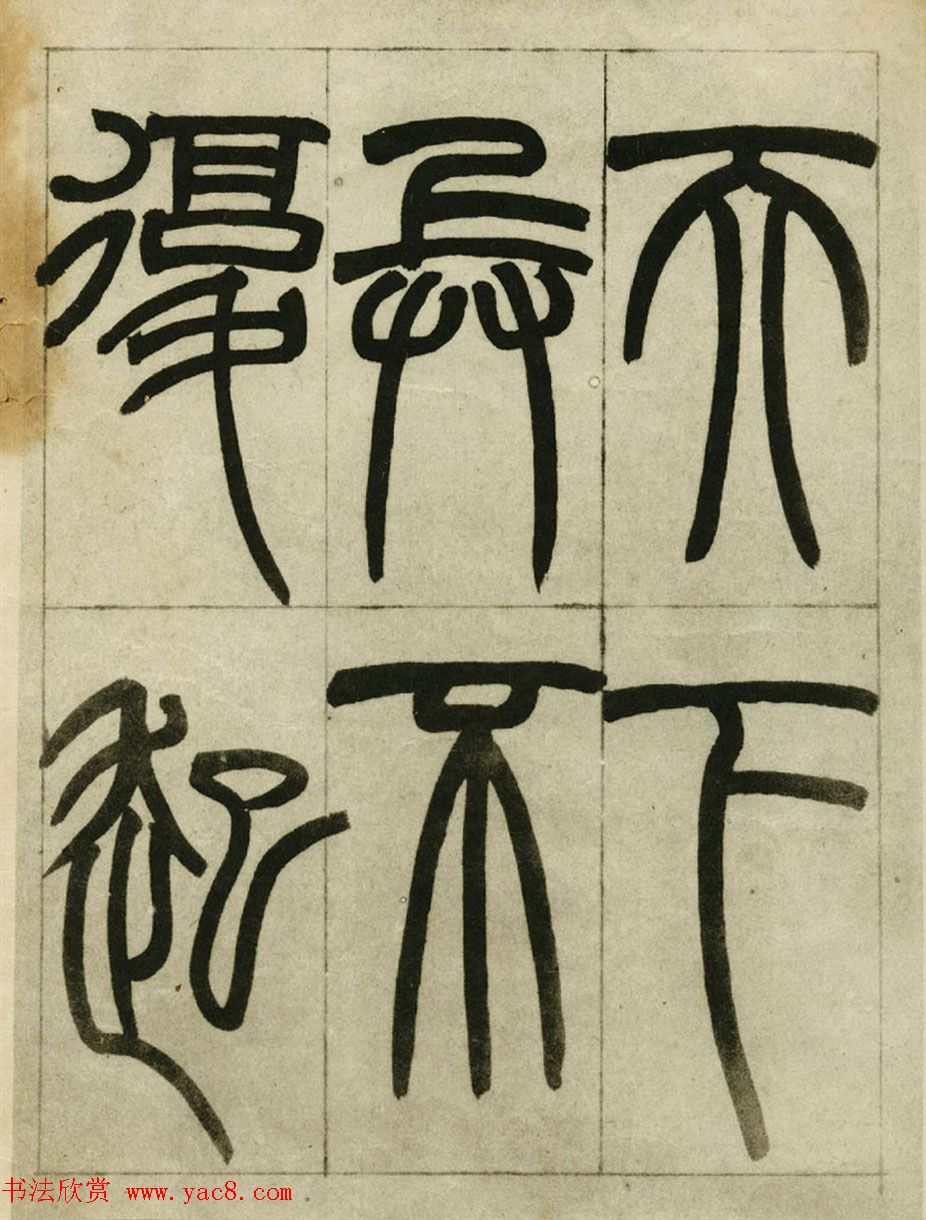 天下
兵不
得起
书法欣赏 www.yac8.com